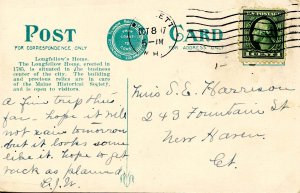 POST CARD
FOR CORRESPONDENCE, ONLY
FOR ADDRESS ONLY
Longfellow's Home.
The Longfellow Home, erected in
1785, is situated in the business
center of the city. The building
and precious relics are in care
of the Maine Historical Society,
and is open to visitors.
A fine trip thus
far - hope it will
not rain tomorrow
but it looks some
like it. hope to get
back as planned
E.J.W.
Miss S. E. Harrison
243 Fountain St
New Haven,
Ct.